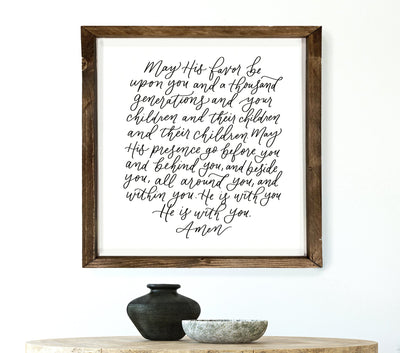 May His favor be
upon you and a thousand
generations and your
children and their children
and their children May
His presence go before you
and behind you, and beside
you, all around you, and
within you. He is with you
He is with you.
Amen